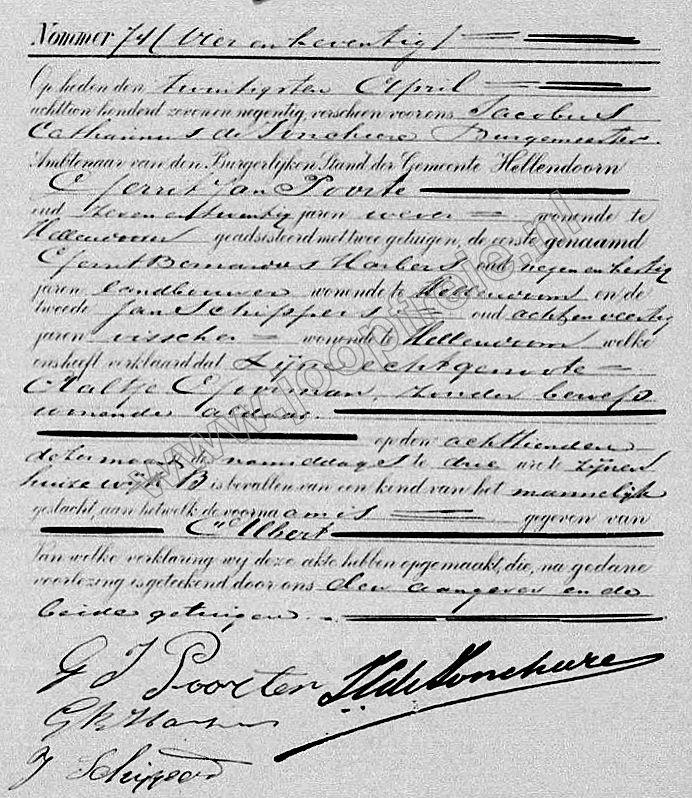 Nommer 74 (Vier en zeventig)
Op heden den twintigsten April
achttien honderd zeven en negentig, verscheen voor ons Jacobus
Catharinus de Lonchure Burgemeester
Ambtenaar van den Burgerlijken Stand der Gemeente Hellendoorn
Gerrit Jan Poorte
oud zeven en twintig jaren wever wonende te
Hellendoorn geadsisteerd met twee getuigen, de eerste genaamd
Gerrit Bernardus Harbers oud negen en
jaren landbouwer wonende te Hellendoorn en de
tweede Jan Schippers oud acht en veertig
jaren visscher wonende te Hellendoorn welke
ons heeft verklaard dat zijne echtgenoote
Aaltje zonder beroep
wonende aldaar
op den achttienden
dezer maand des namiddages te drie ure te zijnen
huize wijk B is bevallen van een kind van het mannelijk
geslacht, aan hetwelk de voornaam is gegeven van
Albert
Van welke verklaring wij deze akte hebben opgemaakt, die, na gedane
voorlezing is geteekend door ons den aangever en de
beide getuigen.
G J Poorten
J Schippers
www.looptijdie.nl